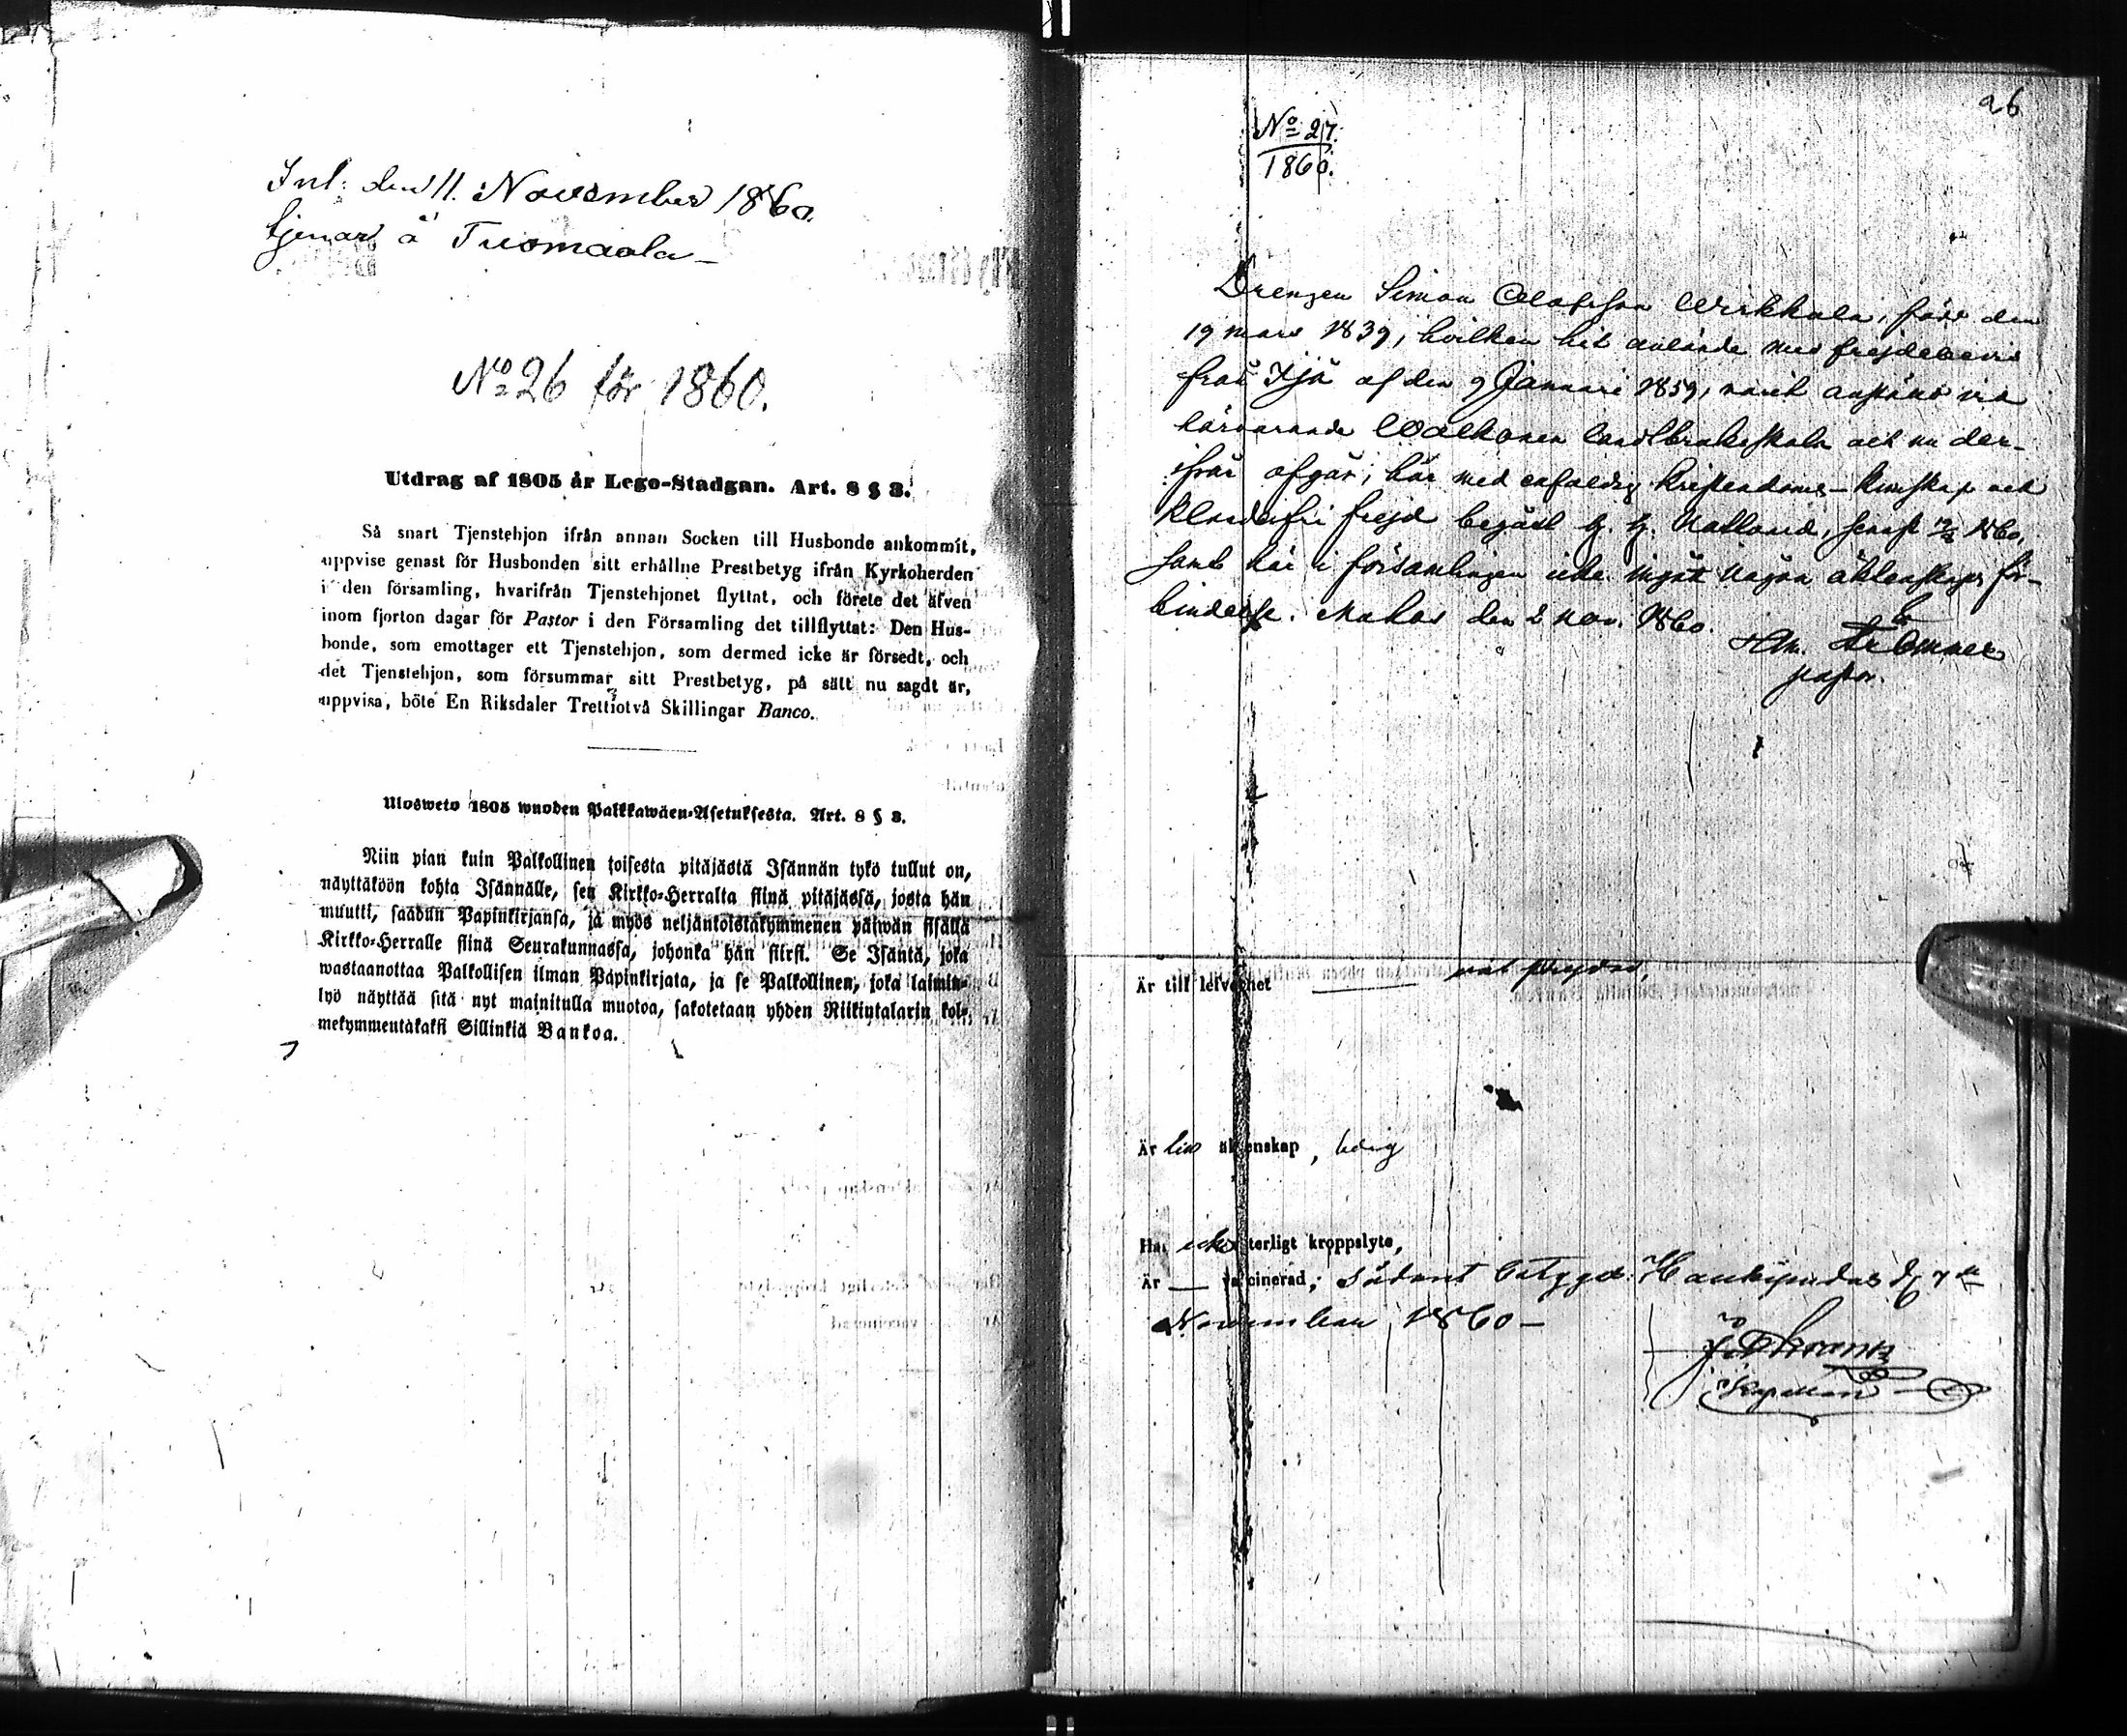 Inl: den 11. November 1860.
tjenar å Tuomaala
No 26 för 1860.
Utdrag af 1805 år Lego-Stadgan. Art. 8 § 3.
Så snart Tjenstehjon ifrån annan Socken till Husbonde ankommit,
uppvise genast för Husbonden sitt erhållne Prestbetyg ifrån Kyrkoherden
i den församling, hvarifrån Tjenstehjonet flyttat, och förete det äfven
inom fjorton dagar för Pastor i den Församling det tillflyttat: Den Hus-
bonde, som emottager ett Tjenstehjon, som dermed icke är försedt, och
det Tjenstehjon, som försummar sitt Prestbetyg, på sätt nu sagdt är,
uppvisa, böte En Riksdaler Trettiotvå Skillingar Banco.
Ulosweto 1805 wuoden Palkkawäen-Asetuksesta. Art. 8 § 3.
Niin pian kuin Palkollinen toisesta pitäjästä Isännän tykö tullut on,
näyttäköön kohta Isännälle, sen Kirkko-Herralta siinä pitäjässä, josta hän
muutti, saadun Papinkirjansa, ja myös neljäntoistakymmenen päiwän sisällä
Kirkko-Herralle siinä Seurakunnassa, johonka hän siirsi. Se Isäntä, joka
wastaanottaa Palkollisen ilman Papinkirjata, ja se Palkollinen, joka laimin-
lyö näyttää sitä nyt mainitulla muotoa, sakotetaan yhden Riikintalarin kol-
mekymmentäkaksi Sillinkiä Bankoa.
26
No 27.
1860.
Drengen Simon Olofsson Wirkkala, född den
19 mars 1839, hvilken hit anlände med frejdebevis
från Ijo af den 9 Januari 1859, varit anstäld vid
härvarande landtbruksskola och nu der-
ifrån afgår, har med enfaldig Kristendoms-kunskap och
klanderfri frejd begått H. H. Nattvard, senast 1860,
samt här i församlingen icke ingått någon äktenskaps för-
bindelse. den 2 nov. 1860.
pastor.
Är till lefvernet
Är äktenskap, ledig
Har icke terligt kroppslyte,
Är — vaccinerad; sådant betygar Haukipudas d. 7
November 1860 —
Kapellan